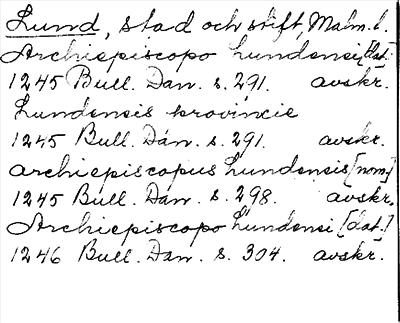 Lund, stad och stift, Malm. l.
Archiepiscopo Lundensi [dat.]
1245 Bull. Dan. s. 291. avskr.
Lundensis provincie
1245 Bull. Dan. s. 291. avskr.
archiepiscopus Lundensis [nom.]
1245 Bull. Dan. s. 298. avskr.
Archiepiscopo Lundensi [dat.]
1246 Bull. Dan. s. 304. avskr.